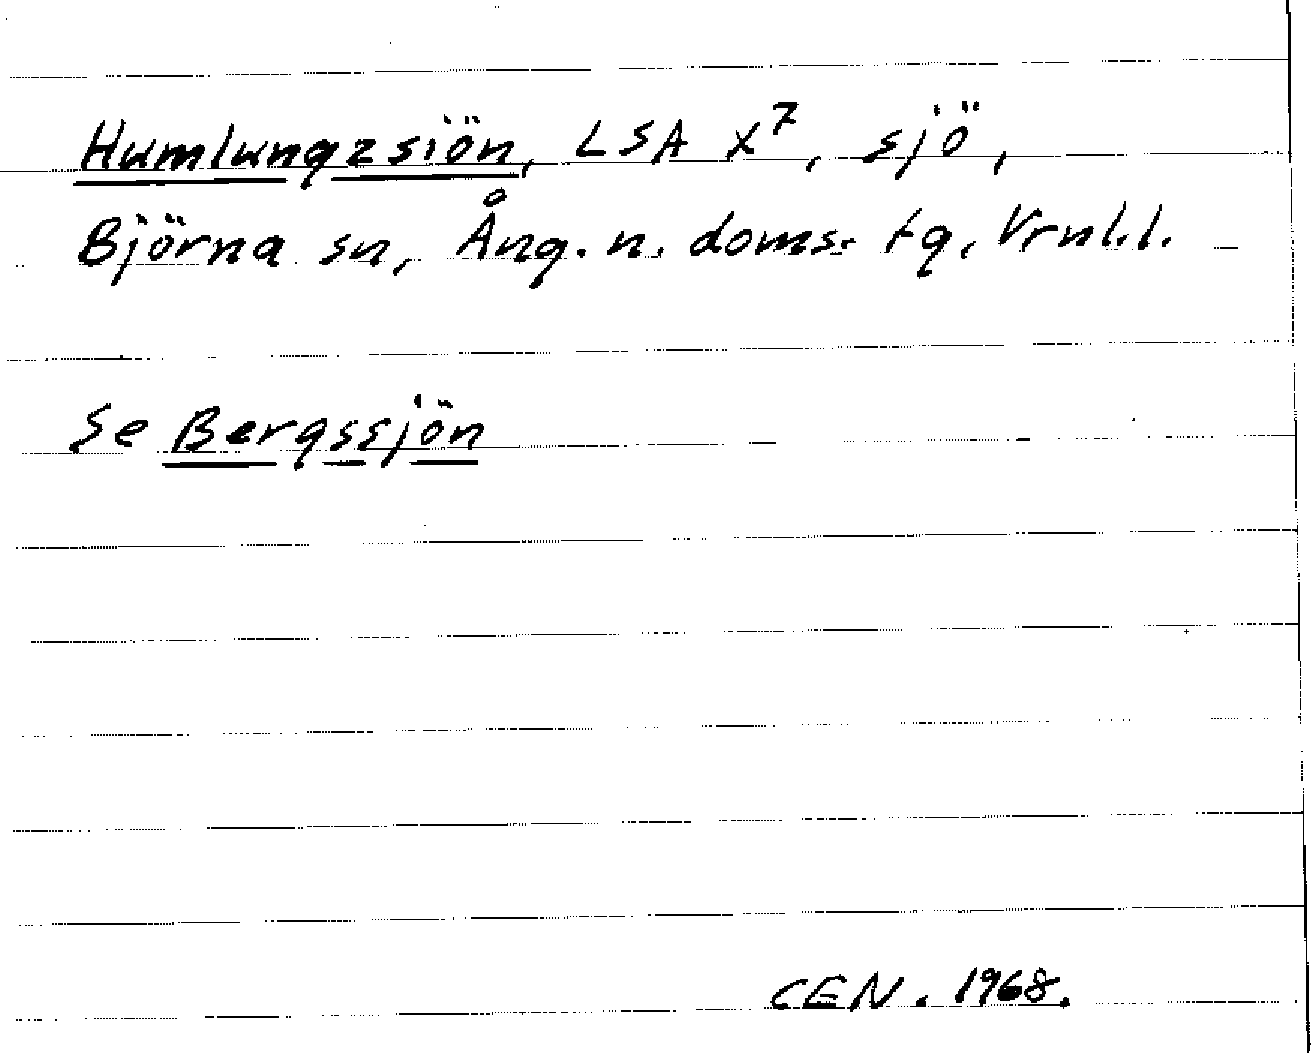 Humlungzsiön, LSA X⁷, sjö,
Björna sn, Ång. n. doms. tg, Vrnl.l.
Se Bergssjön
CEN. 1968.